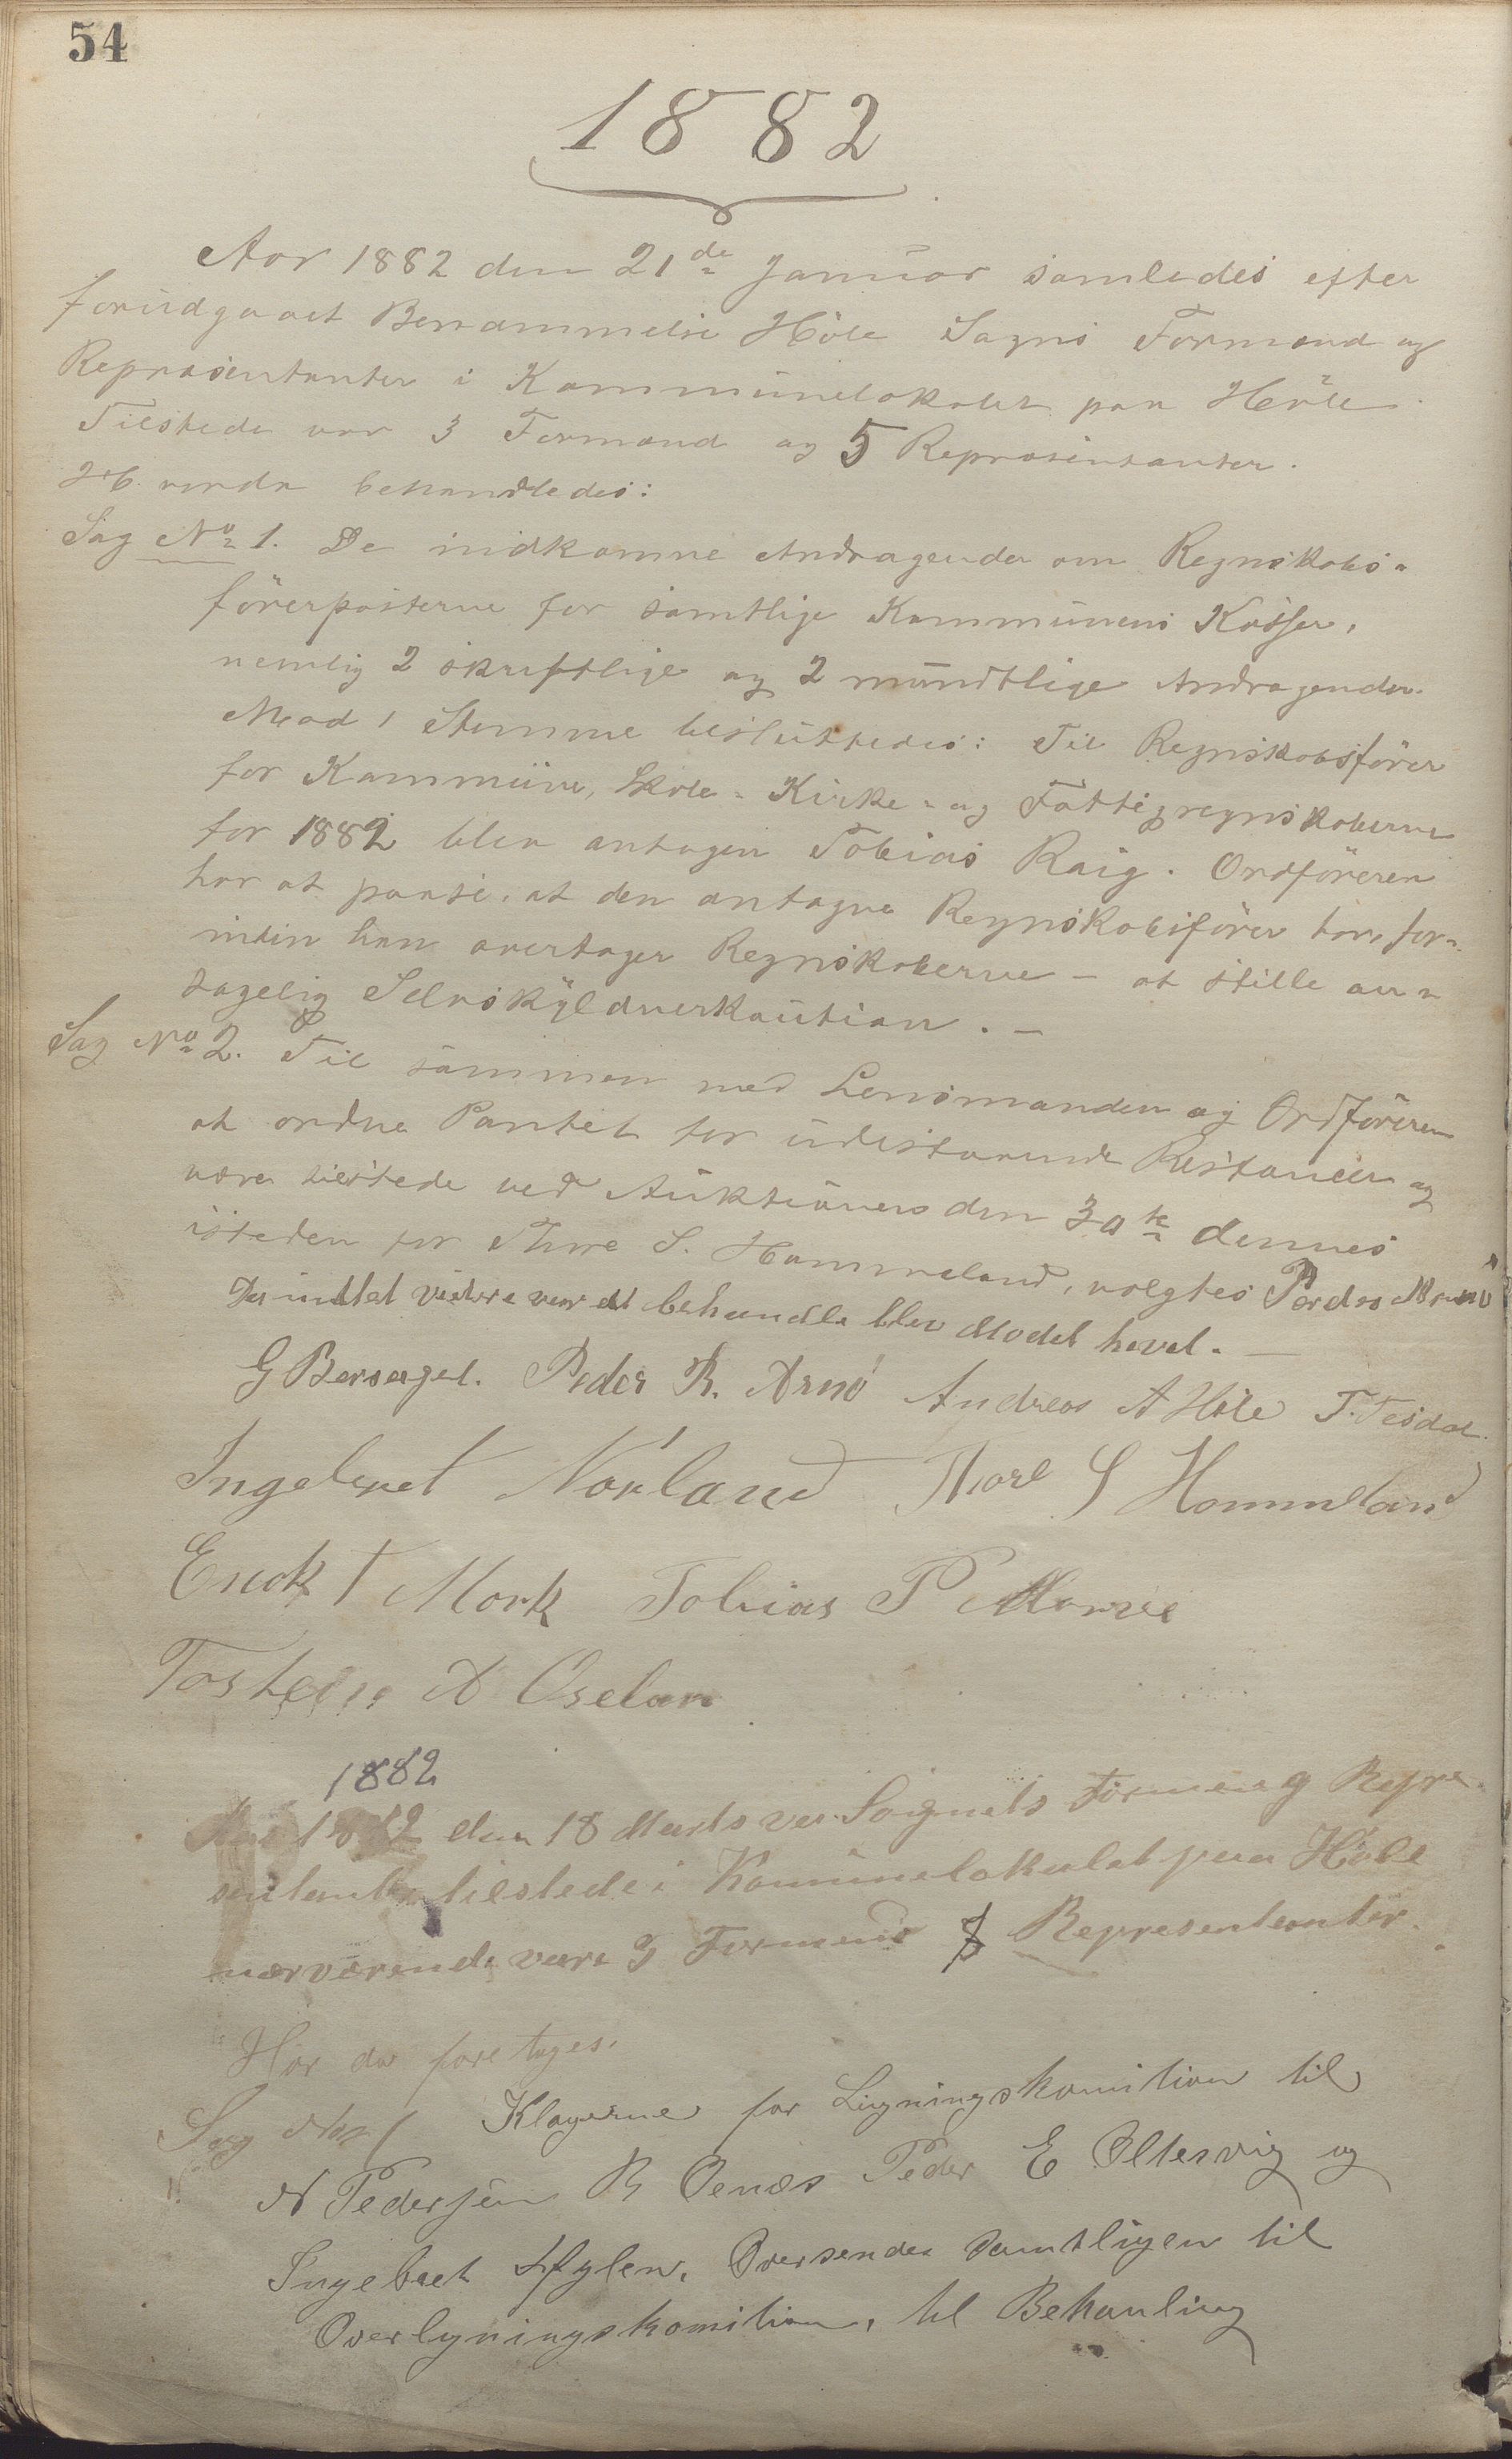 54
1882
Aar 1882 den 21de Januar samledes efter
forudgaaet Berammelse Höle Sogns Formænd og
Repræsentanter i Kommunelokalet paa Höle.
Tilstede var 3 Formænd og 5 Repræsentanter.
Hvorda behandledes:
Sag No 1. De indkomne Andragender om Regnskabs-
förerposterne for samtlige Kommunens Kasser,
nemlig 2 skriftlige og 2 mundtlige Andragender.
Mod 1 Stemme besluttedes: Til Regnskabsförer
for Kommune, Skole- Kirke- og Fattigregnskaberne
for 1882 blev antagen Tobias Raig. Ordföreren
har at paase, at den antagne Regnskabsförer har, for-
inden han overtager Regnskaberne – at stille an-
tagelig Selvskyldnerkaution. –
Sag No 2. Til sammen med Lensmanden og Ordföreren
at ordne Pantet for udestaaende Restancer og
være tilstede ved Auktionen den 30te dennes
isteden for Thore S. Hommeland, valgtes Peder Arnö
Da intet videre var at behandle blev Mødet hævet. –
G Bersagel. Peder R. Arnö Andreas A Höle T. Tesdal
Ingebret Norland Thore S Hommeland
Enok T Mork Tobias P
Tosten A Oselan
1882
Aar 1882 den 18 Marts var Sognets Formen og Repre-
sentanter tilstede i Komunelokalet paa Höle
nærværende vare 3 Formend Representanter.
Hor da foretoges.
Sag No 1 Klagerne for Ligningskomition til
N Pedersen R Oenes Peder E Oltesvig og
Ingebret Hylen, Oversendes samtligen til
Overlygningskomition, til Behanling